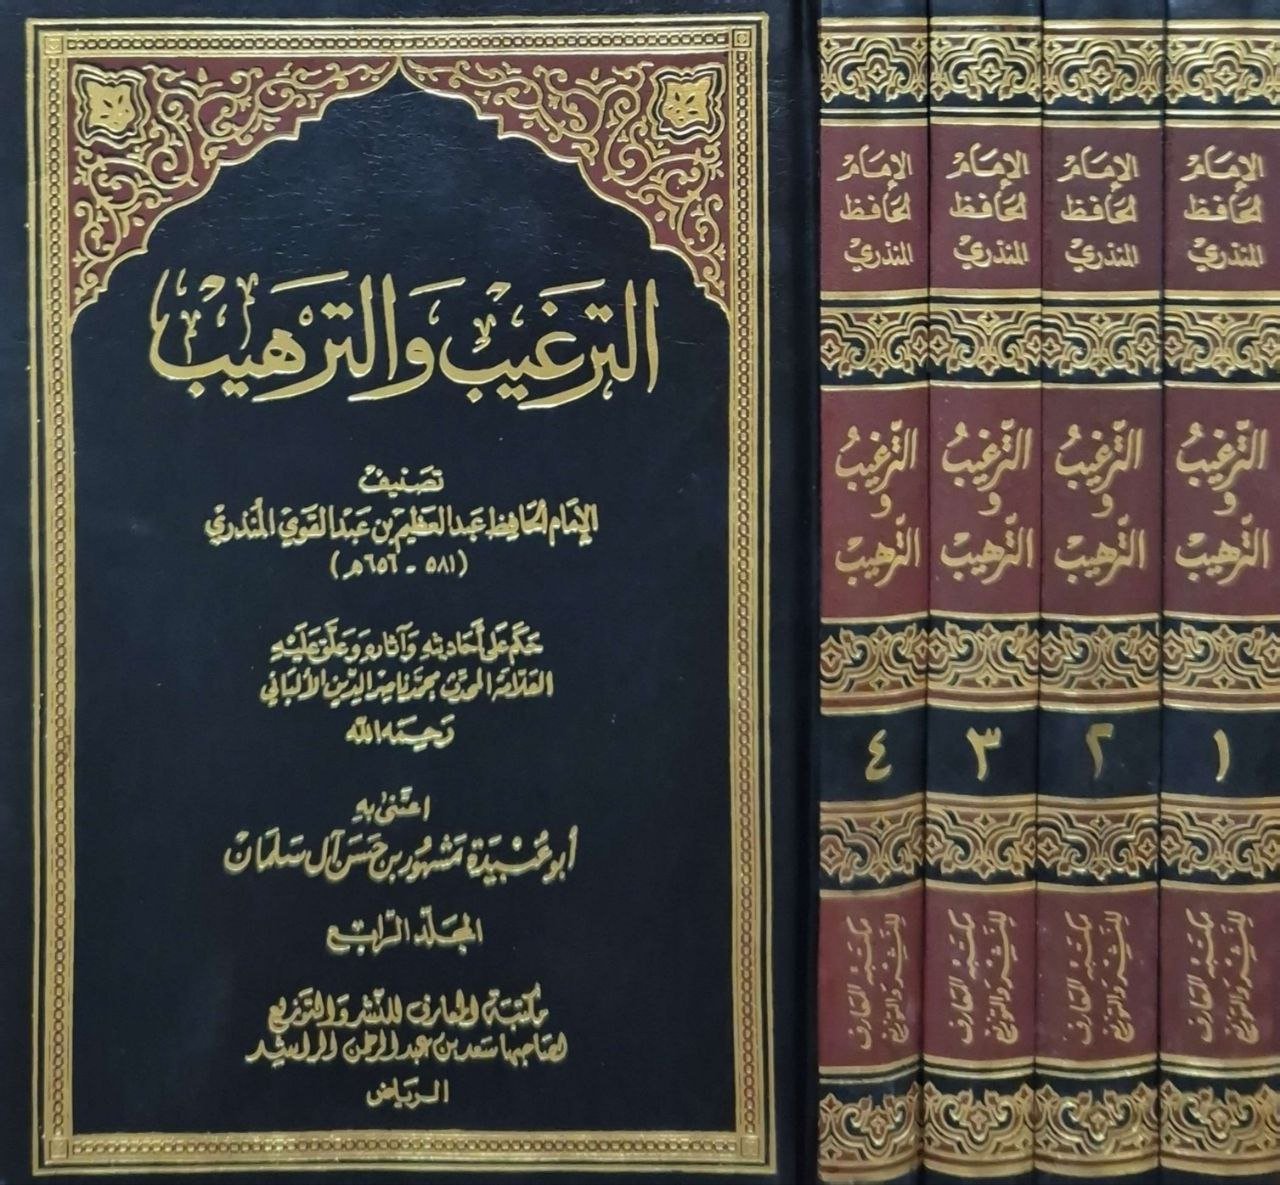 الترغيب والترهيب
تصنيف
الإمام الحافظ عبد العظيم بن عبد القوي المنذري
(٥٨١ - ٦٥٦ه)
حكم على أحاديثه وآثاره وعلق عليه
العلامة المحدث محمد ناصر الدين الألباني
رحمه الله
اعتنى به
أبو عبيدة مشهور بن حسن آل سلمان
المجلد الرابع
مكتبة المعارف للنشر والتوزيع
لصاحبها سعد بن عبد الرحمن الراشد
الرياض
الإمام
الحافظ
المنذري
الترغيب
و
الترهيب
١
مكتبة المعارف
للنشر والتوزيع
الإمام
الحافظ
المنذري
الترغيب
و
الترهيب
٢
مكتبة المعارف
للنشر والتوزيع
الإمام
الحافظ
المنذري
الترغيب
و
الترهيب
٣
مكتبة المعارف
للنشر والتوزيع
الإمام
الحافظ
المنذري
الترغيب
و
الترهيب
٤
مكتبة المعارف
للنشر والتوزيع